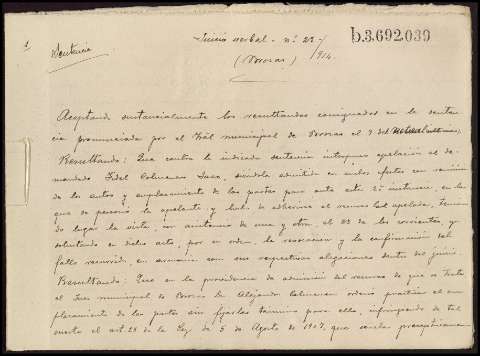 1
Sentencia
Juicio verbal - nº 22 -
1914
b.3.692.039
Aceptando sustancialmente los resultandos consignados en la senten
cia pronunciada por el municipal de el 9 del
Resultando: Que contra la indicada sentencia interpuso apelación el de
mandado Fidel siéndole admitida en ambos efectos con remisión
de los autos y emplazamiento de las partes para ante esta 2ª instancia, en la
que se personó la apelante y hubo de adherirse al recurso la apelada, tenien
do lugar la vista, con asistencia de una y otra, el 22 de los corrientes, y
solicitando en dicho acto, por su orden, la revocación y la confirmación del
fallo recurrido, en armonía con sus respectivas alegaciones dentro del juicio.
Resultando: Que en la providencia de admisión del recurso de que se trata
el Juez municipal de Dn. Alejandro ordenó practicar el em
plazamiento de las partes sin fijarles término para ello, infringiendo de tal
suerte el art. 28 de la Ley de 5 de Agosto de 1907, que señala